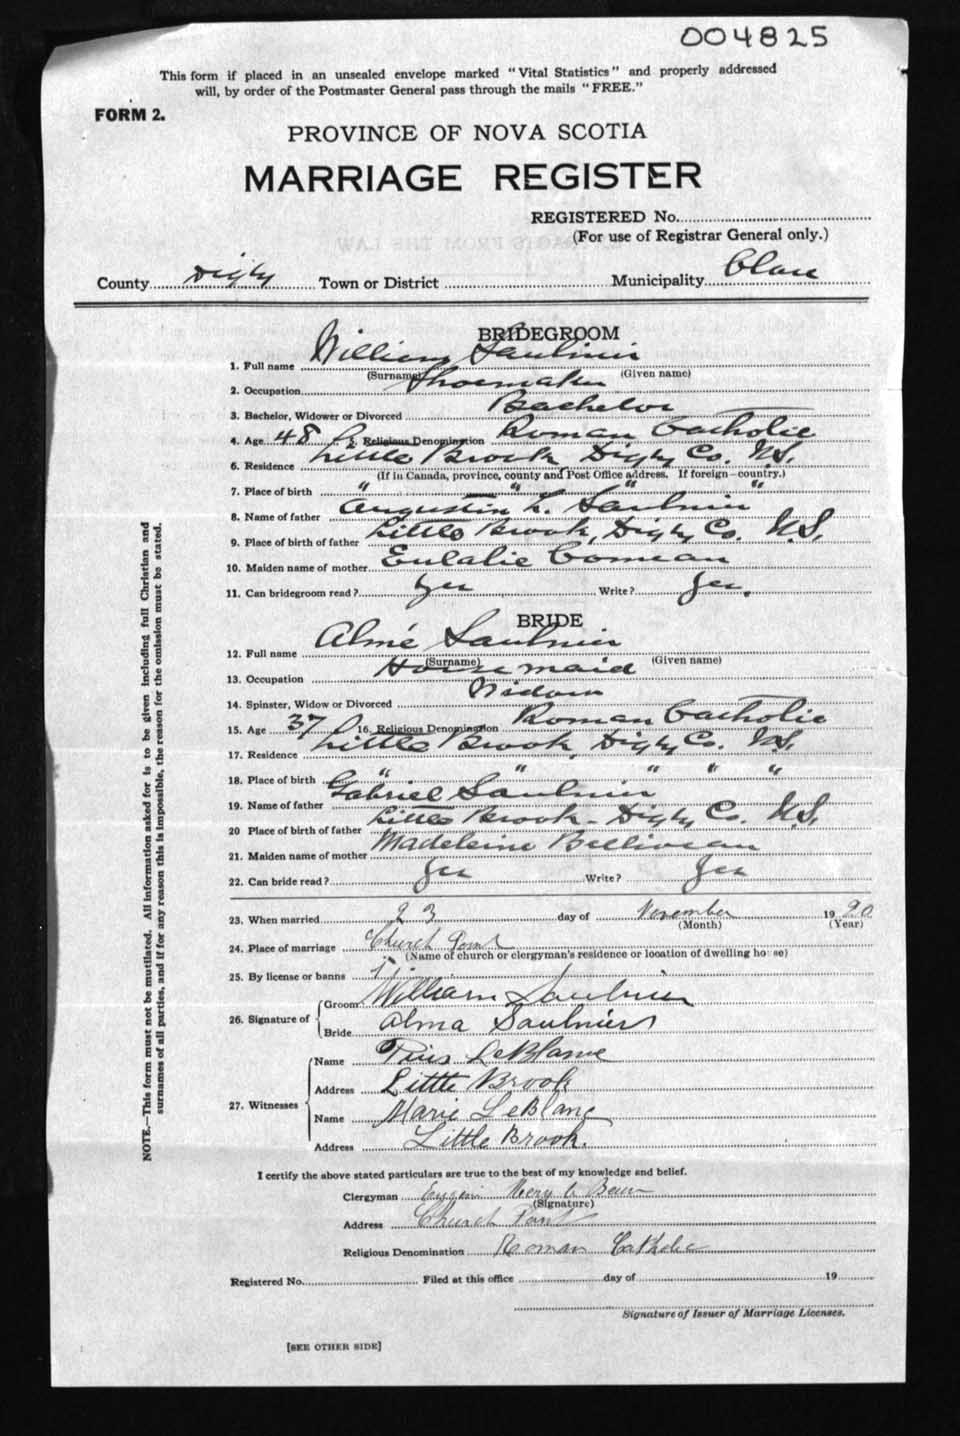 004825
This form if placed in an unsealed envelope marked "Vital Statistics" and properly addressed
will, by order of the Postmaster General pass through the mails "FREE."
FORM 2.
PROVINCE OF NOVA SCOTIA
MARRIAGE REGISTER
REGISTERED No.
(For use of Registrar General only.)
County Digby Town or District Municipality Clare
BRIDEGROOM
1. Full name William Saulnier
(Surname) (Given name)
2. Occupation Shoemaker
3. Bachelor, Widower or Divorced Bachelor
4. Age 48 5. Religious Denomination Roman Catholic
6. Residence Little Brook Digby Co. N.S.
(If in Canada, province, county and Post Office address. If foreign—country.)
7. Place of birth " " " "
8. Name of father Augustin L. Saulnier
9. Place of birth of father Little Brook, Digby Co. N.S.
10. Maiden name of mother Eulalie Comeau
11. Can bridegroom read? Yes Write? Yes.
BRIDE
12. Full name Almé Saulnier
(Surname) (Given name)
13. Occupation Housemaid
14. Spinster, Widow or Divorced Widow
15. Age 37 16. Religious Denomination Roman Catholic
17. Residence Little Brook, Digby Co. N.S.
18. Place of birth " " " " "
19. Name of father Gabriel Saulnier
20 Place of birth of father Little Brook - Digby Co. N.S.
21. Maiden name of mother Madeleine Belliveau
22. Can bride read? Yes Write? Yes
23. When married 23 day of November 19
(Month) (Year)
24. Place of marriage Church Point
(Name of church or clergyman's residence or location of dwelling house)
25. By license or banns
26. Signature of Groom William Saulnier
Bride Alma Saulnier
27. Witnesses Name LeBlanc
Address Little Brook
Name Marie LeBlanc
Address Little Brook.
I certify the above stated particulars are true to the best of my knowledge and belief.
Clergyman
(Signature)
Address Church Point
Religious Denomination Roman Catholic
Registered No. Filed at this office day of 19
Signature of Issuer of Marriage Licenses.
[SEE OTHER SIDE]
NOTE.—This form must not be mutilated. All information asked for is to be given including full Christian and
surnames of all parties, and if for any reason this is impossible, the reason for the omission must be stated.